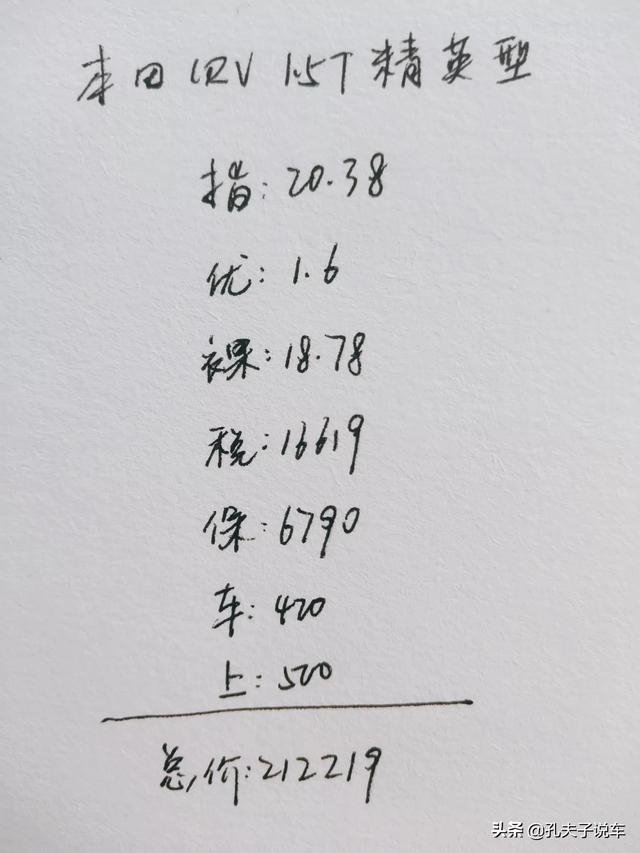 本田CRV 1.5T精英型
指:20.38
优:1.6
裸:18.78
税:16619
保:6790
车:420
上:500
总价:212219
头条@孔夫子说车